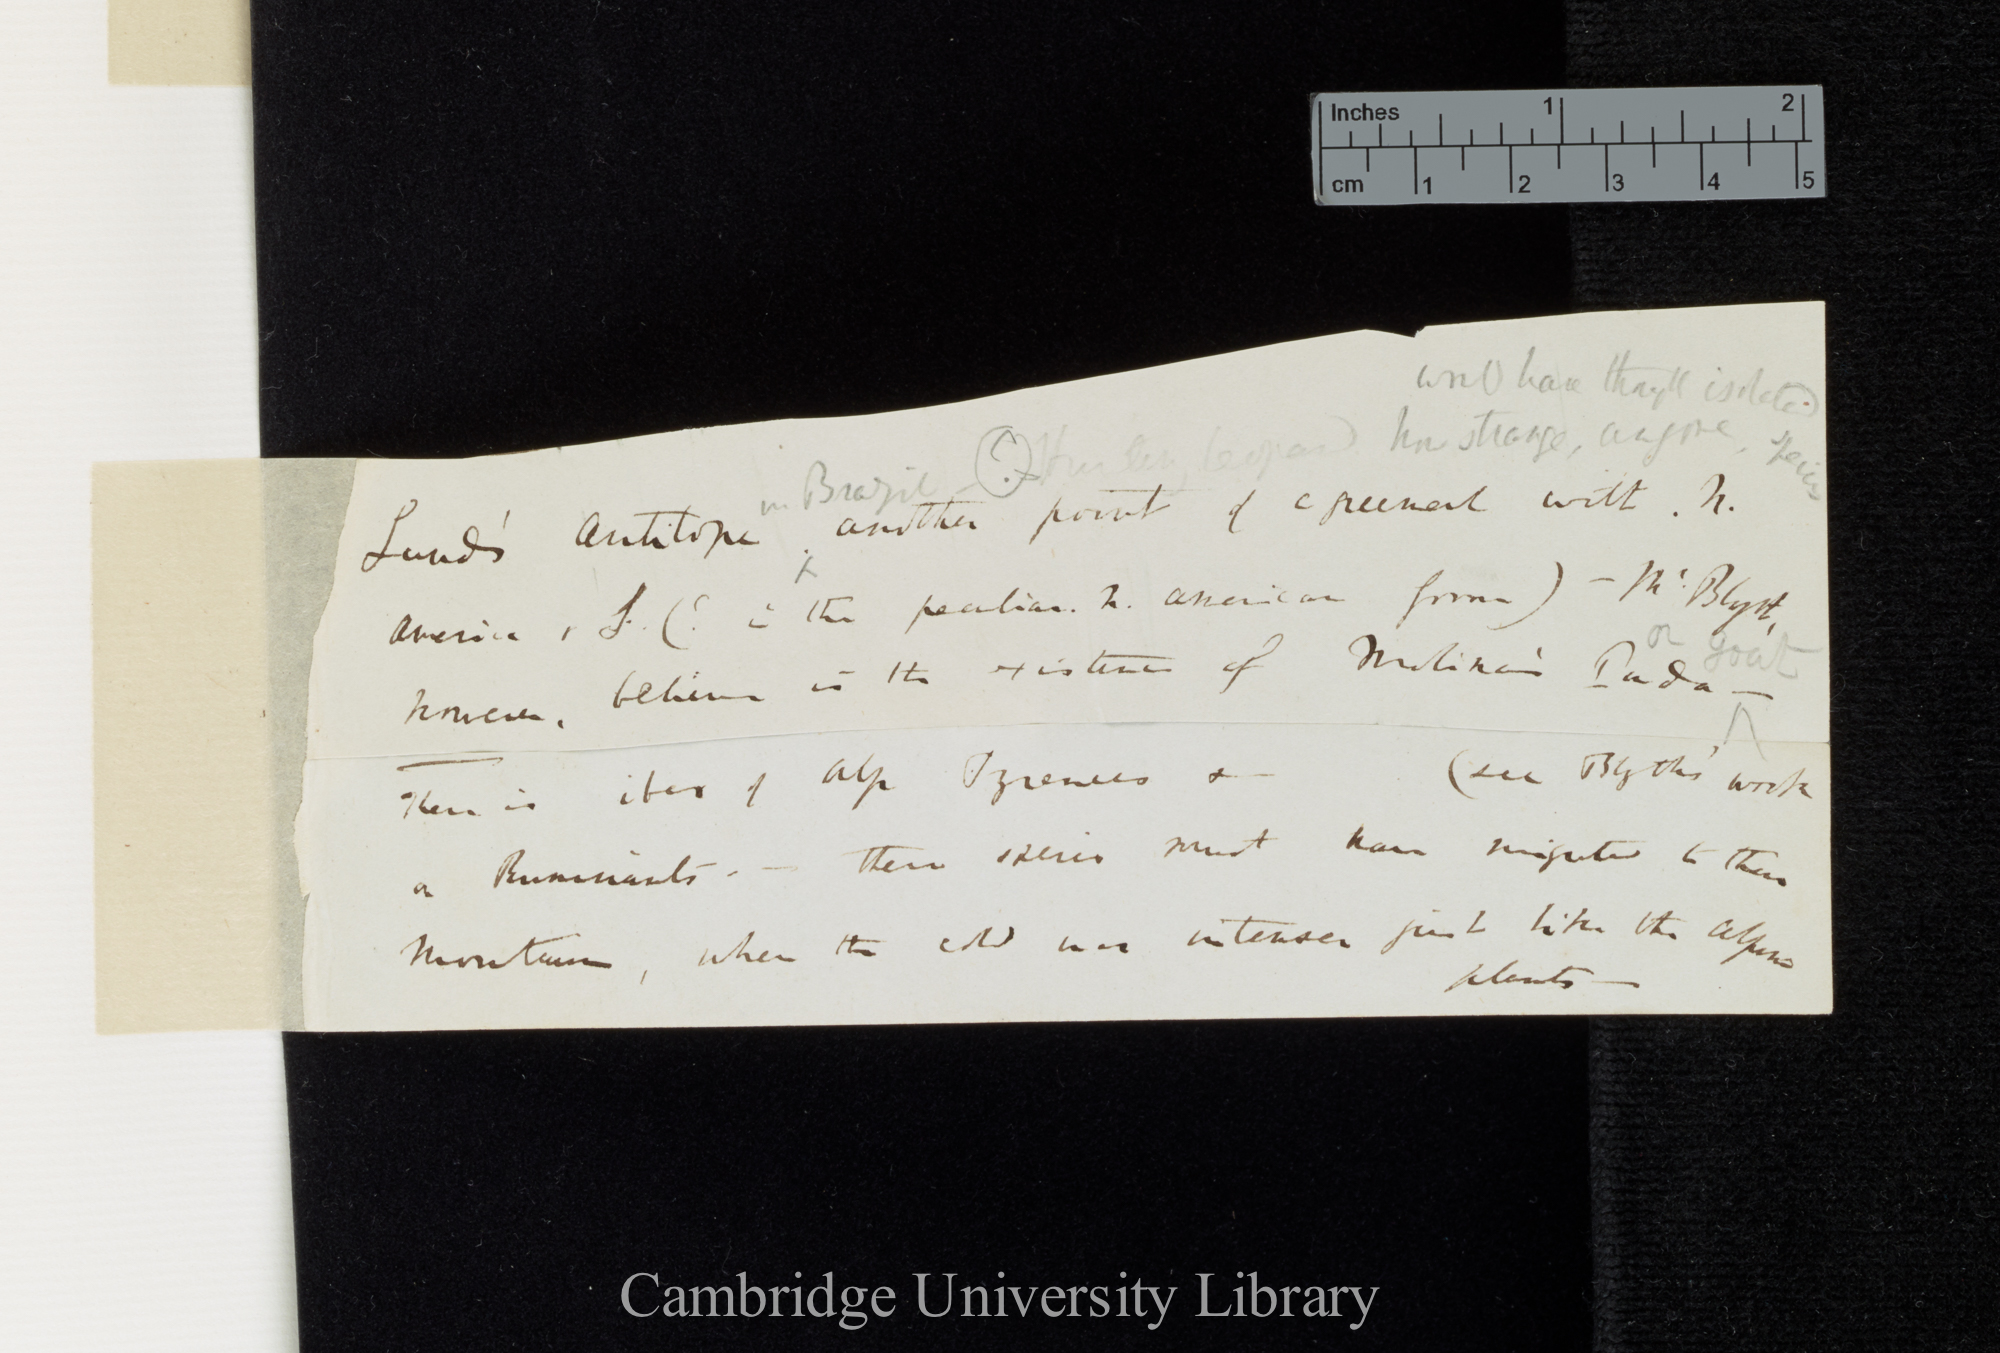 Inches 1 2
cm 1 2 3 4 5
would have thought isolated
how strange, anyone, species
in Brazil (?) Hunting leopard
Lund's Antilope another point of agreement with N.
America & S. (? is the peculiar N. American form) — Mr. Blyth,
or goat
however, believes in the existence of Molina's Puda —
There is ibex of Alp Pyrenees & — (see Blyth's work
on Ruminants. — these species must have migrated to these
Mountains, when the cold was intenser just like the Alpine
plants —
Cambridge University Library